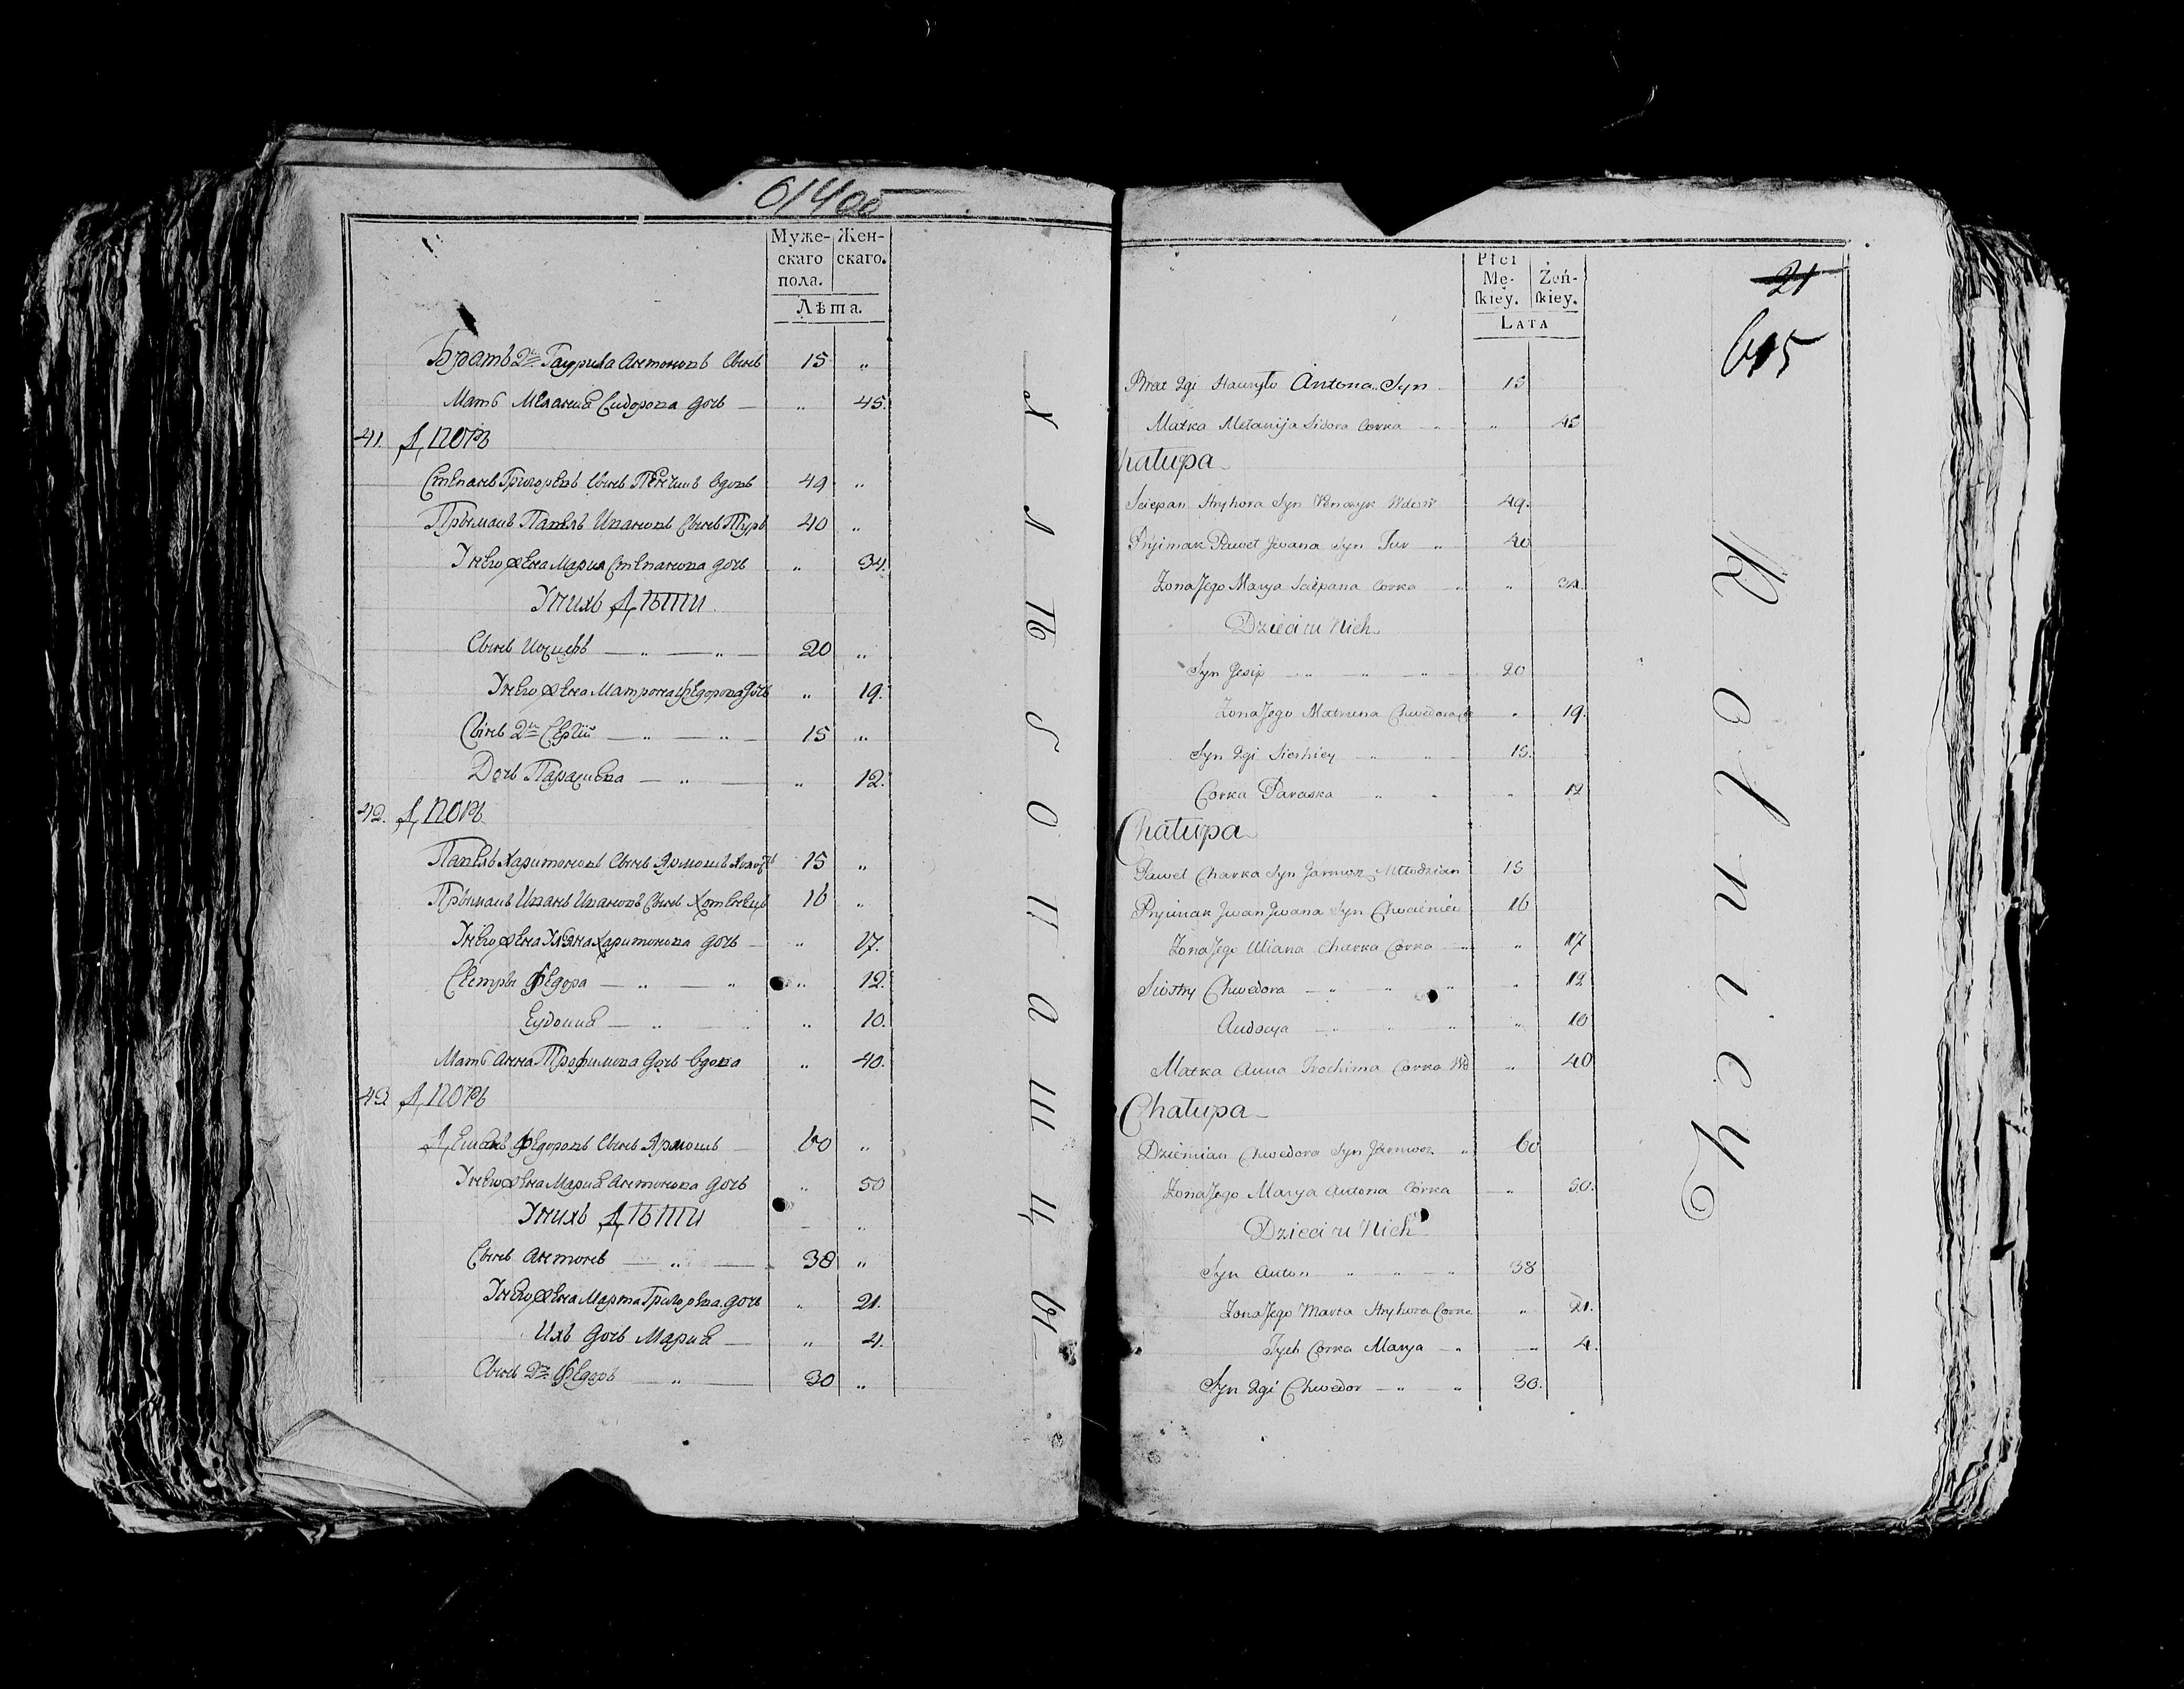 614об
Муже- Жен-
скаго скаго.
пола.
Лѣта.
Братъ 2й Гаурила Антоновъ Сынъ 15 „
Мать Мелания Сидорова дочь — „ 45.
41. Дворъ
Степанъ Григорьевъ Сынъ Пенчикъ вдовъ 49 „
Прымакъ Павелъ Ивановъ Сынъ Туръ 40 „
У него жена Мария Степанова дочь „ 34.
У нихъ Дѣти
Сынъ Иозифъ — „ — „ — 20 „
У него жена Матрона Федорова дочь „ 19.
Сынъ 2й Сергiй — „ — „ — 15 „
Дочь Параскева — „ — „ 12.
42. Дворъ
Павелъ Харитоновъ Сынъ Ярмошъ 15 „
Прымакъ Иванъ Ивановъ Сынъ 16 „
У него жена Ульяна Харитонова дочь — „ 17.
Сестры Федора — „ — „ „ 12.
Еудокия — „ — „ „ 10.
Мать Анна Трофимова дочь вдова „ 40.
43. Дворъ
Демьянъ Федоровъ Сынъ Ярмошъ — 60 „
У него жена Мария Антонова дочь „ 50
У нихъ Дѣти „
Сынъ Антонъ — „ — 38 „
У него жена Марта Григорьева дочь „ 21.
Ихъ дочь Мария — „ 4.
Сынъ 2й Федоръ — „ — 30 „
Płci
Mę- Żeń-
ſkiey. ſkiey.
LATA
21
615
Brat 2gi Hauryło Antona Syn — 15
Matka Mełanija Sidora Corka — „ „ 45
Chałupa
Sciepan Hryhora Syn Penczyk Wdow 49.
Pryimak Paweł Jwana Syn Tur „ 40
Żona Jego Marya Sciepana Corka „ „ 34.
Dzieci u Nich
Syn Jesip — „ — „ — 20
Żona Jego Matruna Chwedora „ 19.
Syn 2gi Sierhiey „ „ — 15.
Corka Paraska „ „ „ 12
Chałupa
Paweł Charka Syn Jarmosz Młodzian 15
Pryimak Jwan Jwana Syn 16
Żona Jego Uliana Charka Corka — „ 17
Siostry Chwedora — „ — „ „ 12
Audocya — „ — „ „ 10
Matka Anna Trochima Corka Wd „ 40
Chałupa
Dziemian Chwedora Syn Jarmosz „ 60
Żona Jego Marya Antona Corka — „ 50.
Dzieci u Nich
Syn Anton „ — „ — „ 38
Żona Jego Marta Hryhora Corka „ 21.
Jych Corka Marya — „ — „ 4.
Syn 2gi Chwedor — „ — „ 30.
Rolnicy